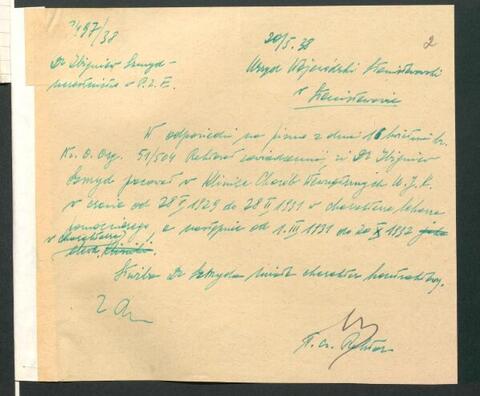 497/38
20/5.38
2
Dr Zbigniew Szmyd -
uczestnictwo w P.Z.E.
Urząd Wojewódzki Stanisławowski
w Stanisławowie
W odpowiedzi na pismo z dnia 16 kwietnia br.
51/504 Rektorat zawiadamia, iż Dr Zbigniew
Szmyd pracował w Klinice Chorób Wewnętrznych U.J.K.
w czasie od 28 1929 do 28 II 1931 w charakterze lekarza
pomocniczego a następnie od 1. III 1931 do 20 1932
w charakterze
Służba Dr Szmyda miała charakter kontraktowy.
Rektor